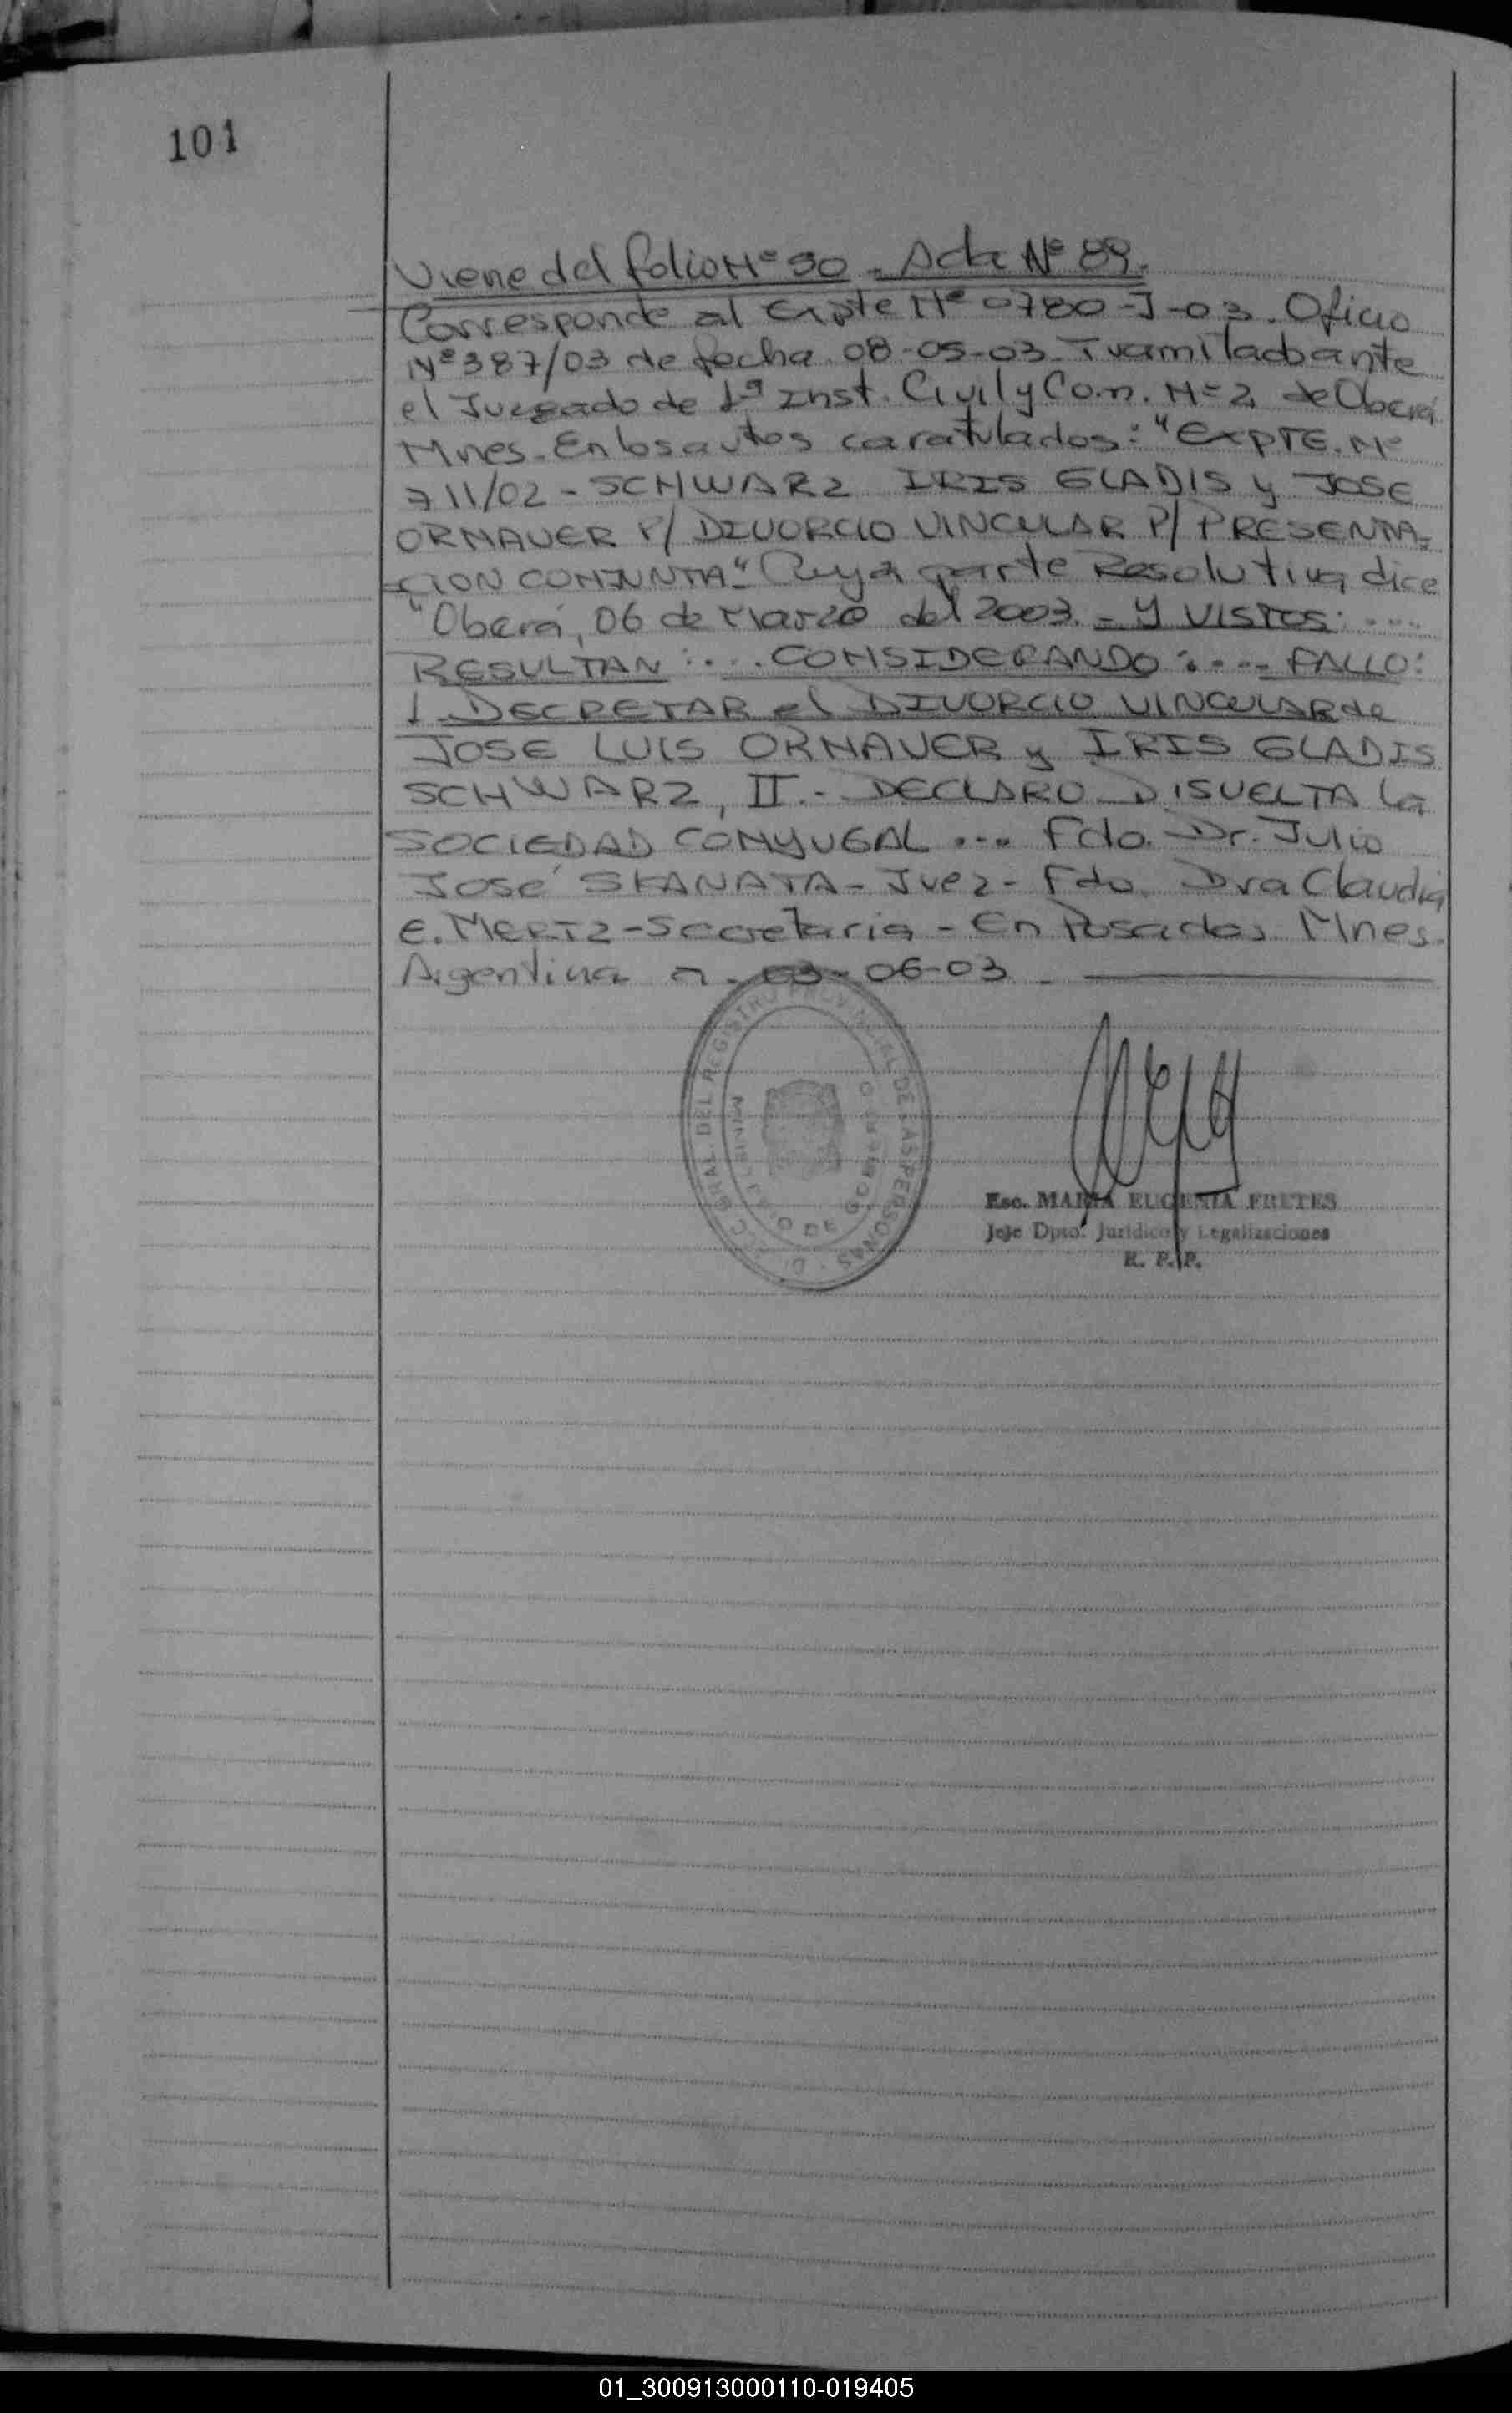 101
Viene del folio Nº 90 - Acta Nº 89.
Corresponde al Expte Nº 0780-J-03. Oficio
Nº 387/03 de fecha 08-05-03. Tramitado ante
el Juzgado de 1ª Inst. Civil y Com. Nº 2 de Oberá
Mnes. En los autos caratulados: "EXPTE. Nº
711/02 - SCHWARZ IRIS GLADIS y JOSE
ORNAUER P/ DIVORCIO VINCULAR P/ PRESENTA-
CION CONJUNTA" Cuya parte Resolutiva dice
"Oberá, 06 de Marzo del 2003. - Y VISTOS: ....
RESULTAN: .... CONSIDERANDO: .... FALLO:
I DECRETAR el DIVORCIO VINCULAR de
JOSE LUIS ORNAUER y IRIS GLADIS
SCHWARZ, II.- DECLARO DISUELTA la
SOCIEDAD CONYUGAL ... Fdo. Dr. Julio
José SKANATA - Juez - Fdo. Dra Claudia
E. MERTZ - Secretaria - En Posadas Mnes.
Argentina a 03-06-03.
DIREC. GRAL. DEL REGISTRO PROVINCIAL DE LAS PERSONAS
MINISTERIO DE GOBIERNO
Esc. MARIA EUGENIA FRETES
Jefe Dpto. Jurídico y Legalizaciones
R. P. P.
01_300913000110-019405